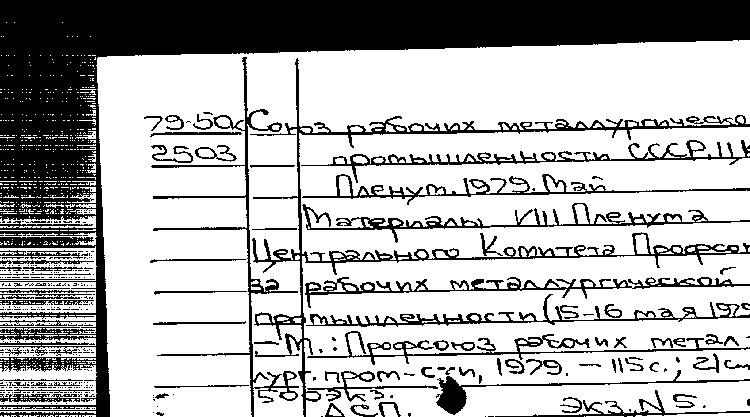 79-50к Союз рабочих металлургическо
2503 промышленности СССР.
Пленум. 1979. Май
Материалы VIII Пленума
Центрального Комитета Профсою
за рабочих металлургической
промышленности (15-16 мая 1979
– М.: Профсоюз рабочих метал-
лург. пром-сти, 1979. – 115с.; 21см
500экз.
ДСП. Экз. N 5.